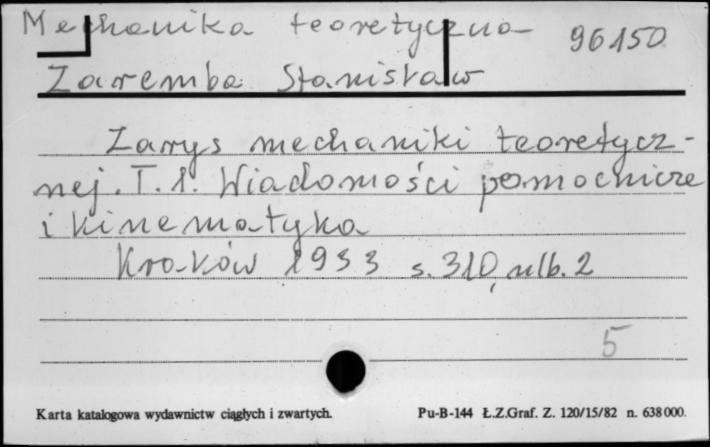 Mechanika teoretyczna 96150
Zaremba Stanisław
Zarys mechaniki teoretycz-
nej. T. 1. Wiadomości pomocnicze
i kinematyka
Kraków 1933 s. 310, nlb. 2
5
Karta katalogowa wydawnictw ciągłych i zwartych. Pu-B-144 Ł.Z.Graf. Z. 120/15/82 n. 638000.